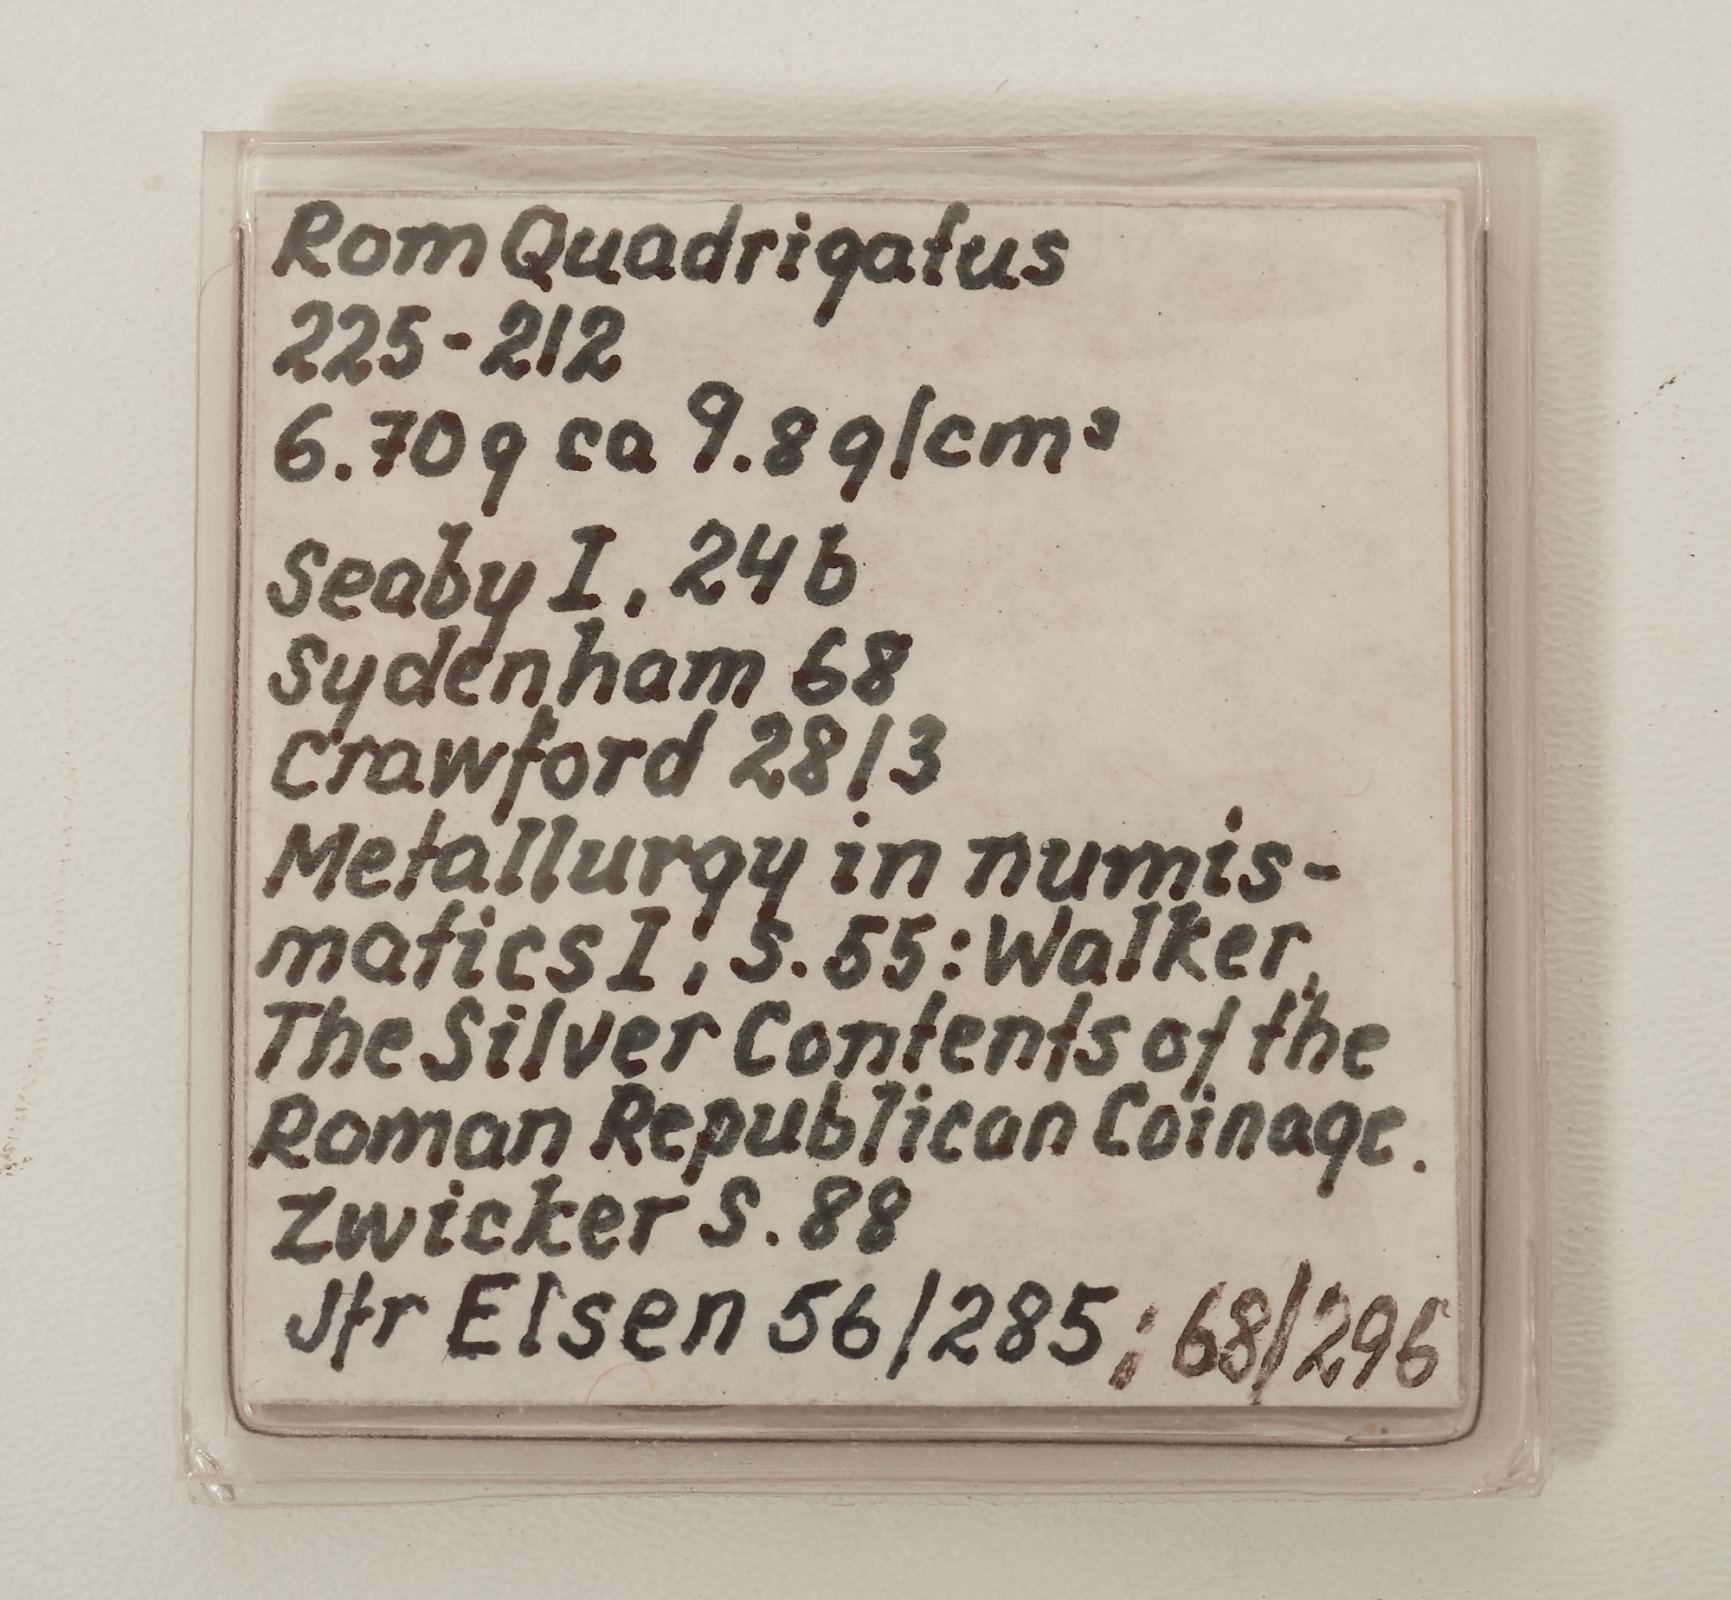 Rom Quadrigatus
225-212
6.70g ca 9.8g/cm³
Seaby I, 24b
Sydenham 68
Crawford 28/3
Metallurgy in numis-
matics I; S.55: Walker,
The Silver Contents of the
Roman Republican Coinage.
Zwicker S.88
Jfr Elsen 56/285; 68/296